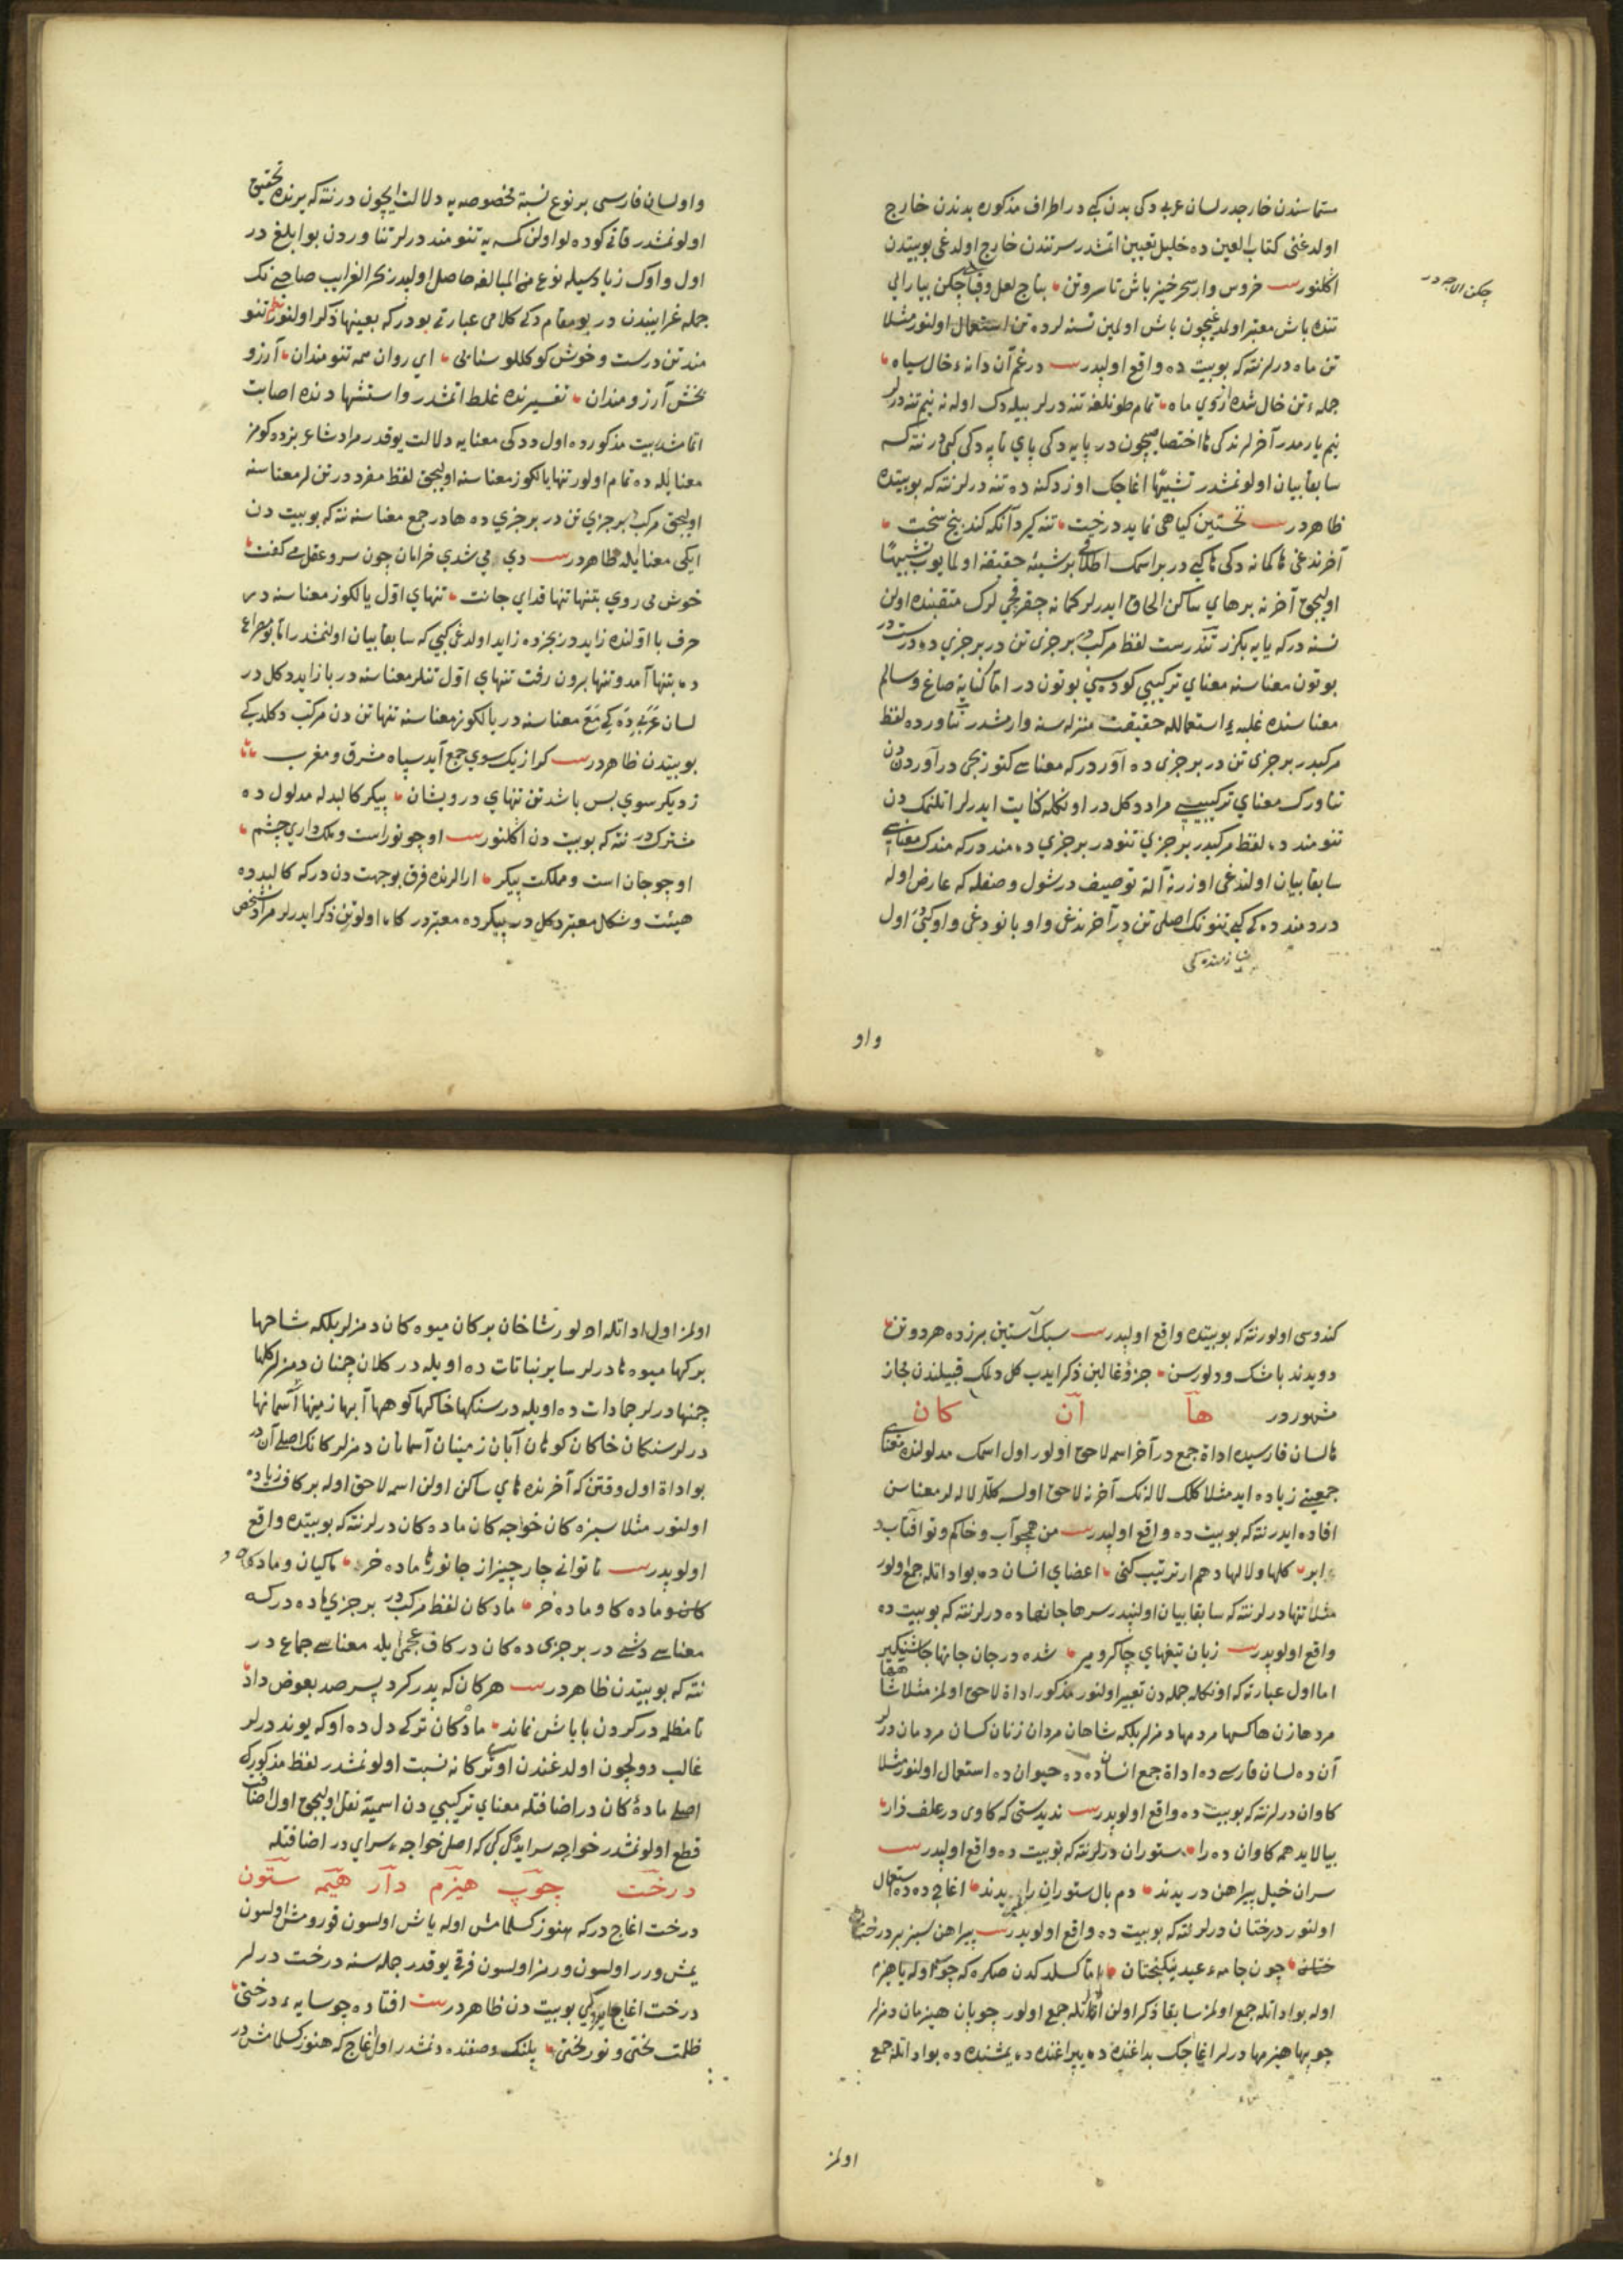 مسماسندن خارجدر لسان عربده كى بدن كبى در اطراف مذكوره بدندن خارج
اولدغنى كتاب العين ده خليل تعيين اتمشدر سر تندن خارج اولدغى بو بيتدن
اكلنور خروس وار سحر خيز باش تا سر و تن بتاج لعل و قباچكن بيارالى
چكن الاجه در
تنده باش معتبر اولدغيچون باش اولمين نسنه لرده تن استعمال اولنور مثلا
تن ماه درلر نته كه بو بيت ده واقع اولبدر در غم آن دانهٔ خال سياه
جملهٔ تن خال شده از روي ماه تمام طونلغنه تنه درلر بيله دك اوله نه نيم تنه درلر
نيم يارمدر آخرلرندكى ها اختصاصيچون در پايه دكى پاي تا پايه دكى كبى در نته كه
سابقا بيان اولونمشدر تشبيهًا اغاجك اوزدكنه ده تنه درلر نته كه بو بيتده
ظاهردر نخستين كياهى نمايد درخت تنه كيرد آنكه كند بيخ سخت
آخرندغى ها كمانه دكى ها كبى در بر اسمك اطلاقى بر شيئه حقيقة اولمايوب تشبيهًا
اوليجق آخرنه بر هاي ساكن الحاق ايدرلر كمانه چقرقجى لرك متقبنده اولن
نسنه در كه يايه بكزر تندرست لفظ مركبدر بر جزى تن در بر جزي ده درست در
بوتون معناسنه معناي تركيبى كوده سى بوتون در اما كناية صاغ و سالم
معناسنده غلبهٔ استعمالله حقيقت منزله سنه وارمشدر تناور ده لفظ
مركبدر بر جزى تن در بر جزى ده آور در كه معناسى كتورجى در آوردن دن
تناورك معناي تركيبى مراد دكل در اونكله كنايت ايدرلر اتلنمكدن
تنومند ده لفظ مركبدر بر جزي تنو در بر جزي ده مند در كه مندك معناسى
سابقا بيان اولندغى اوزرنه آلة توصيف در شول وصفله كه عارض اوله
دردمند ده كى كبى تنونك اصلى تن در آخرندغى واو بانودغى واو كبى اول
نيازمنده كى
واو
واو لسان فارسى بر نوع نسبة مخصوصه يه دلالت ايچون در نته كه يرنده تحقيق
اولونمشدر قاتى كوده لو اولن كمسه يه تنومند درلر تناوردن بو ابلغ در
اول واوك زياده سيله نوع من المبالغه حاصل اولبدر ذكر الغرايب صاحبى نك
جمله غرايبندن در بو مقام دكى كلامى عبارتى بودر كه بعينها ذكر اولنور تنو
مند تن درست و خوش كوكللو سنايى اي روان همه تنومندان آرزو
بخش آرزومندان تفسيرنده غلط اتمشدر و استشهادنده اصابت
اتمامشدر بيت مذكورده اول ددكى معنايه دلالت يوقدر مراد شاعر بزده كورمز
معنايله ده تمام اولور تنها يالكوز معناسنه اوليجق لفظ مفرددر تن لر معناسنه
اوليجق مركبدر بر جزي تن در بر جزي ده ها در جمع معناسنه نته كه بو بيت دن
ايكى معنايله ظاهردر دي مى شدي خرامان چون سرو عقل مى كفت
خوش مى روي بتنها تنها فداي جانت تنهاي اول يالكوز معناسنه در
حرف با اولنده زايددر بجزده زايد اولدغى كبى كه سابقا بيان اولنمشدر اما بو مصراع
ده بتنها آمد و تنها برون رفت تنهاي اول تنلر معناسنه در با زايد دكل در
لسان عربده كى مع معناسنه در يالكوز معناسنه تنها تن دن مركب دكلدر كى
بو بيتدن ظاهردر كر از يك سوي جمع آيد سپاه مشرق و مغرب
ز ديكر سوي بس باشد تن تنهاي درويشان پيكر كالبدله مدلول ده
مشتركدر نته كه بو بيت دن اكلنور او چو نور است و ملك داري چشم
او چو جان است و مملكت پيكر ارالرنده فرق بو جهت دن در كه كالبدده
هيئت و شكل معتبر دكل در پيكرده معتبر در كاه اولوتن ذكر ايدرلر مراد شخص
كندوسى اولور نته كه بو بيتده واقع اولبدر سبك آستين بر زده هر دو تن
دويدند با مشك و دلو رسن جزؤ غالبن ذكر ايدب كل دلمك قبيلندن مجاز
مشهوردر ها آن كان
ها لسان فارسيده اداة جمع در آخر اسمه لاحق اولور اول اسمك مدلولنده معناى
جمعيتى زياده ايدر مثلا كلك لاله نك آخرنه لاحق اولسه كللر لاله لر معناسن
افاده ايدر نته كه بو بيت ده واقع اولبدر من همچو آب و خاكم و تو آفتاب و
ابر كلها و لالها دهم ار تربيت كنى اعضاي انسان ده بو اداتله جمع اولور
مثلا تنها درلر نته كه سابقا بيان اولنبدر سرها جانها ده درلر نته كه بو بيت ده
واقع اولوبدر زبان تيغهاي چاكر و مير شده در جان جانها جاشنيكير
اما اول عبارته كه اونكله جمله دن تعبير اولنور مذكور اداة لاحق اولمز مثلا شاهها
مردها زن ها كسها مردمها دمزلر بلكه شاهان مردان زنان كسان مردمان درلر
آن ده لسان فارسى ده اداة جمع انسان ده ده حيوان ده استعمال اولنور مثلا
كاوان درلر نته كه بو بيت ده واقع اولوبدر نديدستى كه كاوى در علف زار
بيالايد همه كاوان ده را ستوران درلر نته كه بو بيت ده واقع اولبدر
سران خيل پيراهن دريدند دم بال ستوران را بريدند اغاج ده ده استعمال
اولنور درختان درلر نته كه بو بيت ده واقع اولوبدر پيراهن سبز بر درختان
چون جامهٔ عيد نيكبختان اما كسلدكدن صكره كه چوب اوله يا هيزم
اوله بو اداتله جمع اولمز سابقا ذكر اولن اداتله جمع اولور چوبان هيزمان دمزلر
چوبها هيزمها درلر اغاجك بداغنده ده يپراغنده ده يمشنده ده بو اداتله جمع
اولمز
اولمز اول اداتله اولور شاخان بركان ميوه كان دمزلر بلكه شاخها
بركها ميوه ها درلر ساير نباتات ده اويله در كلان چمنان دمزلر كلها
چمنها درلر جمادات ده اويله در سنكها خاكها كوهها آبها زمينها آسمانها
درلر سنكان خاكان كوهان آبان زمينان آسمانان دمزلر كانك اصلى آن در
بو اداة اول وقتن كه آخرنده هاي ساكن اولن اسمه لاحق اوله بر كاف زياده
اولنور مثلا سبزه كان خواجه كان ماده كان درلر نته كه بو بيتده واقع
اولوبدر تا توانى چار چيز از جانورها ماده خر ماكيان و مادكاو و
ماده كاو و ماده خر مادكان لفظ مركبدر بر جزي ماده در كه
معناسى دشى در بر جزى ده كان در كاف عجمى ايله معناسى جماع در
نته كه بو بيتدن ظاهردر هر كان كه پدر كرد پسر صد بعوض داد
تا مظلمه در كردن باباش نماند مادكان تركى دل ده اوكه يوند درلر
غالب دولجون اولدغندن اوتركانه نسبت اولونمشدر لفظ مذكورك
اصلى مادهٔ كان در اضافتله معناي تركيبى دن اسميته نقل اوليجق اول اضافت
قطع اولونمشدر خواجه سرايدكى كبى كه اصلى خواجهٔ سراي در اضافتله
درخت چوب هيزم دار هيمه ستون
درخت اغاج در كه هنوز كسلمامش اوله ياش اولسون قورومش اولسون
يمش ورر اولسون ورمز اولسون فرق يوقدر جمله سنه درخت درلر
درخت اغاج ايدكى بو بيت دن ظاهردر افتاده چو سايهٔ درختى
ظلمت لختى و نور لختى پلنك وصفنده دنمشدر اول اغاج كه هنوز كسلمامش در